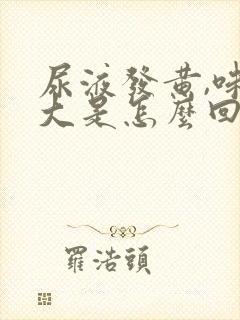 尿液發黃,味
大是怎麼回
羅浩頭